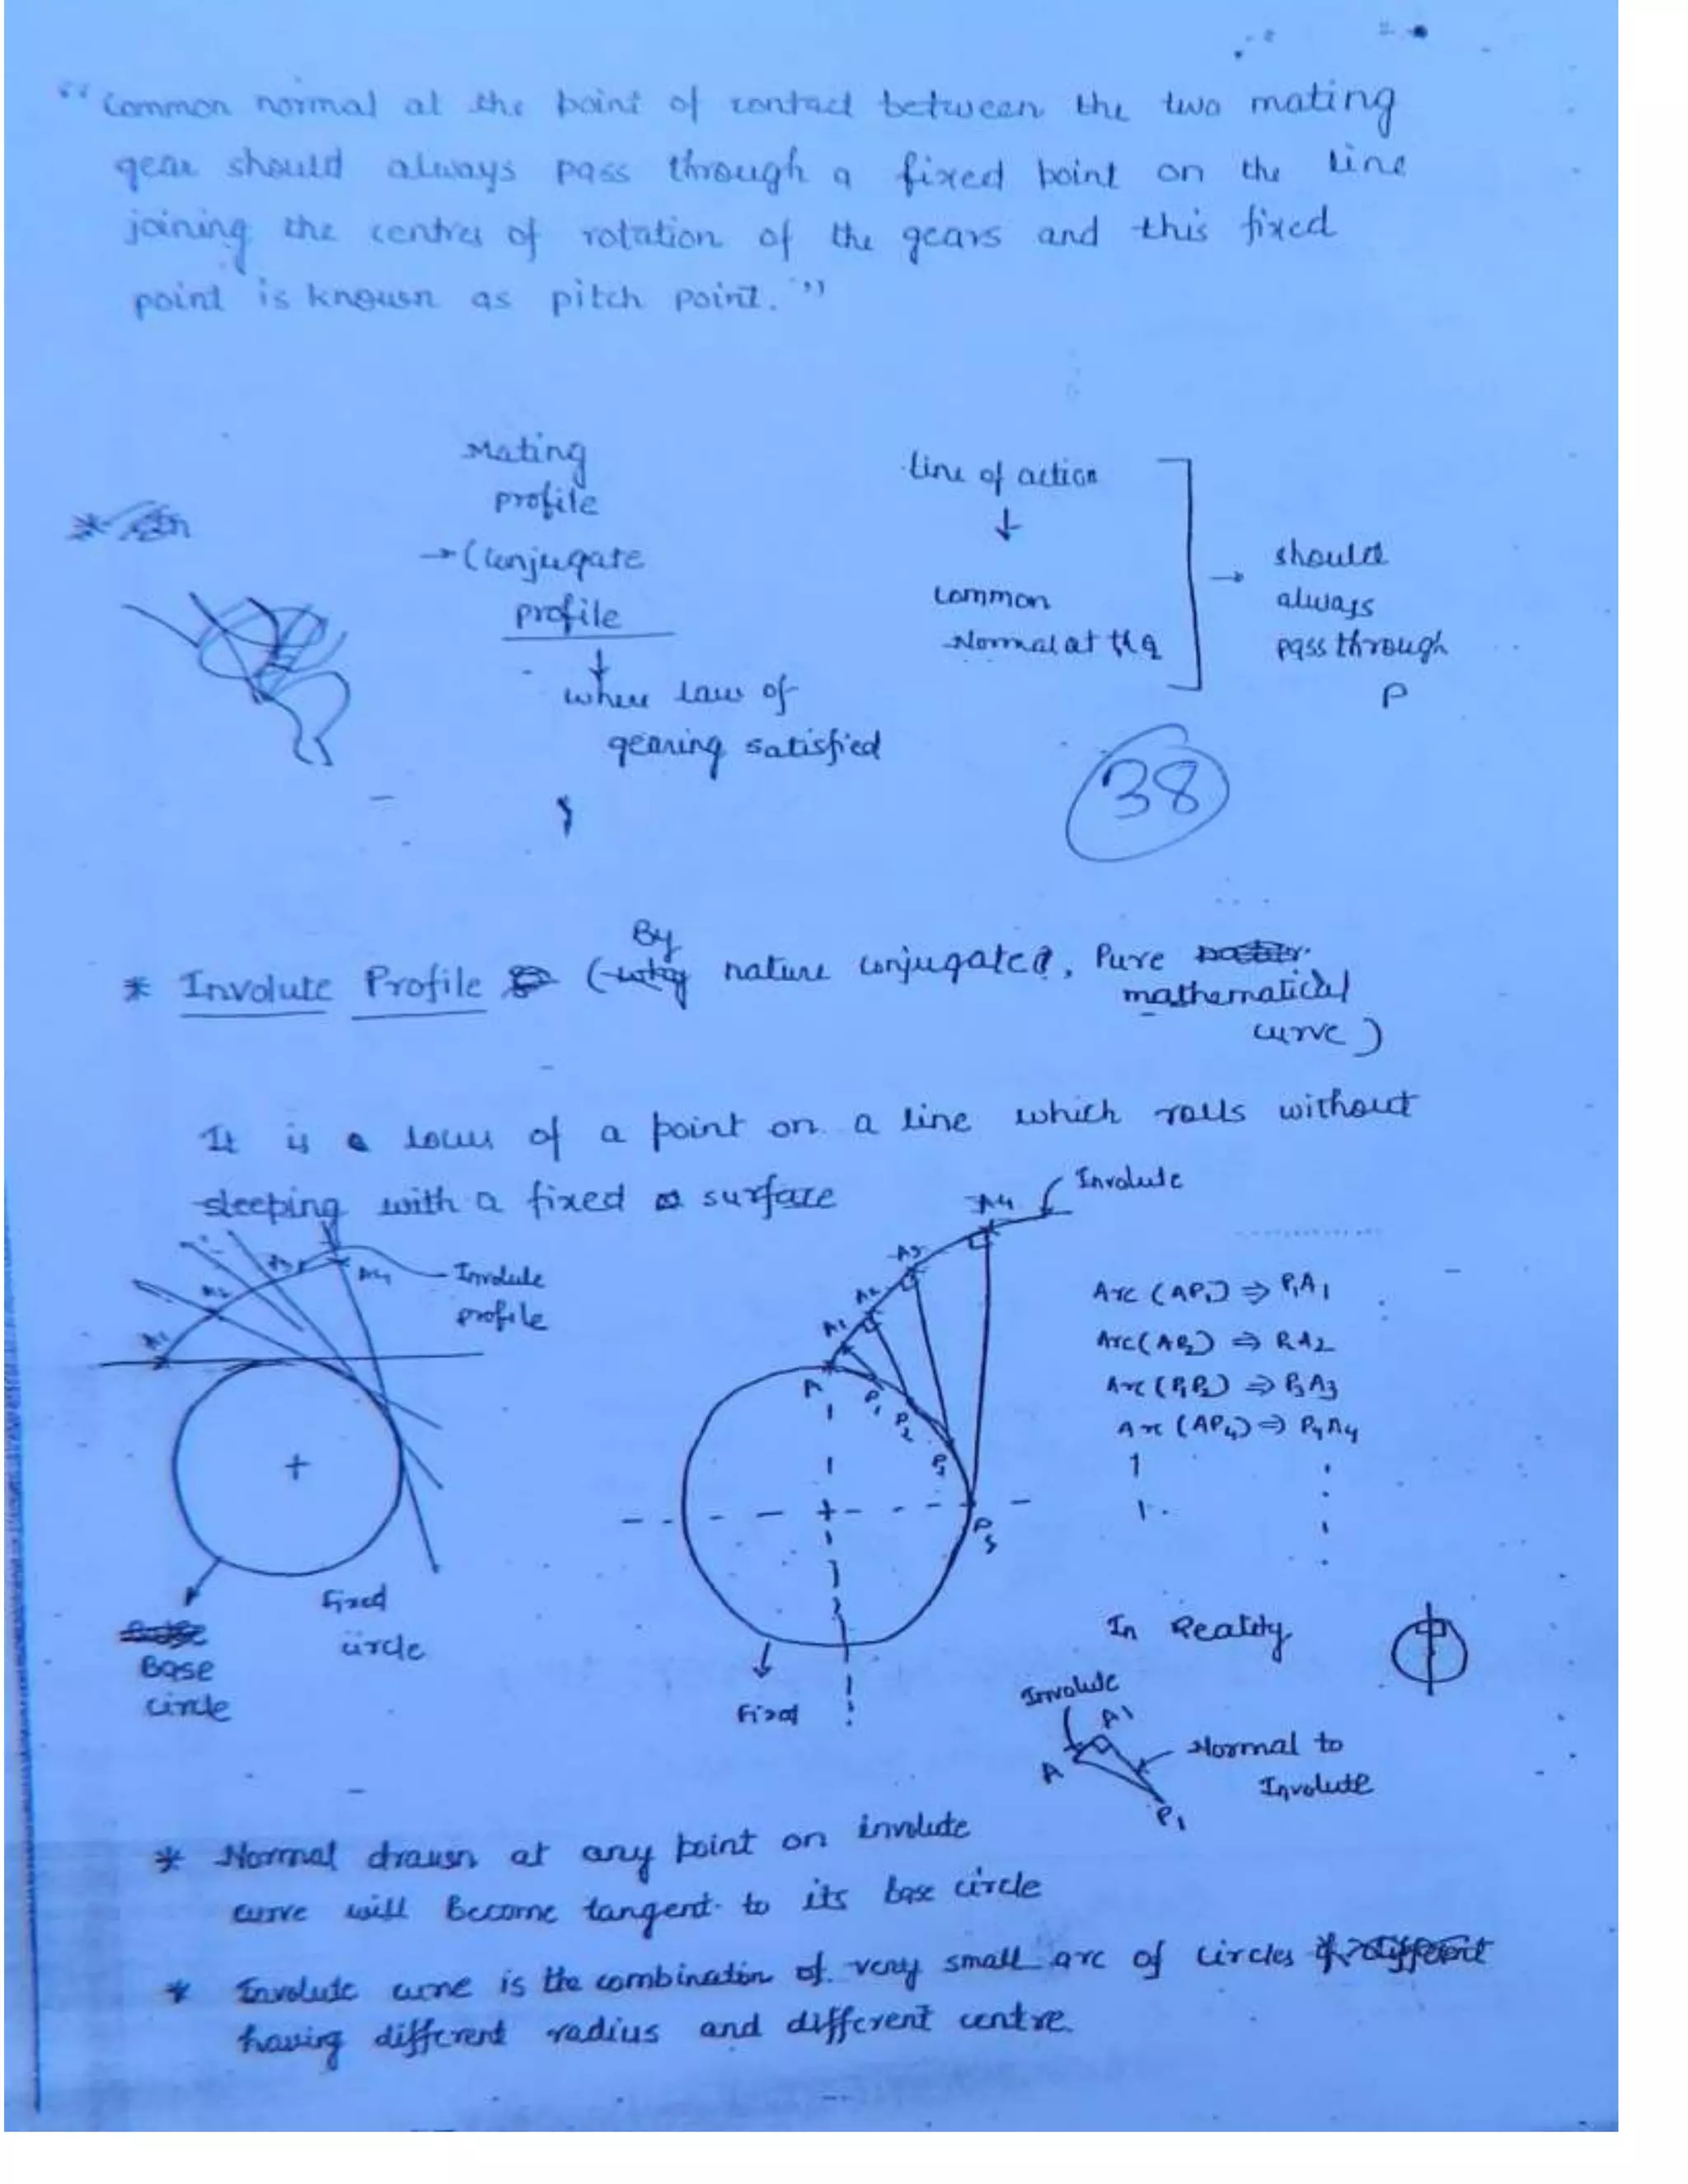 "Common normal at the point of contact between the two mating
gear should always pass through a fixed point on the line
joining the centres of rotation of the gears and this fixed
point is known as pitch point."
Mating
profile
→ (Conjugate
profile
↓
where Law of
gearing satisfied
line of action
↓
common
Normal at the
→ should
always
pass through
P
38
* Involute Profile (By nature conjugated, Pure
mathematical
curve)
It is a locus of a point on a line which rolls without
sleeping with a fixed surface
Involute
A4
A3
A2
A1
A
P1
P2
P3
Fixed
A1
A2
A4
Involute
profile
Base
circle
Fixed
circle
Arc (AP1) ⇒ P1A1
Arc (AP2) ⇒ P2A2
Arc (P1P2) ⇒ P3A3
Arc (AP4) ⇒ P4A4
In Reality
Involute
A1
A
P1
Normal to
Involute
* Normal drawn at any point on involute
curve will Become tangent to its base circle
* Involute curve is the combination of very small arc of circles
having different radius and different centre.